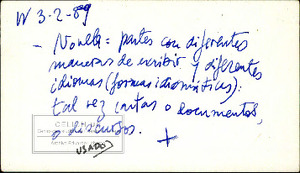 W 3-2-89
- Novela: partes con diferentes
maneras de escribir y diferentes
idiomas (formas idiomáticas):
tal vez cartas o documentos
o discursos.
USADO